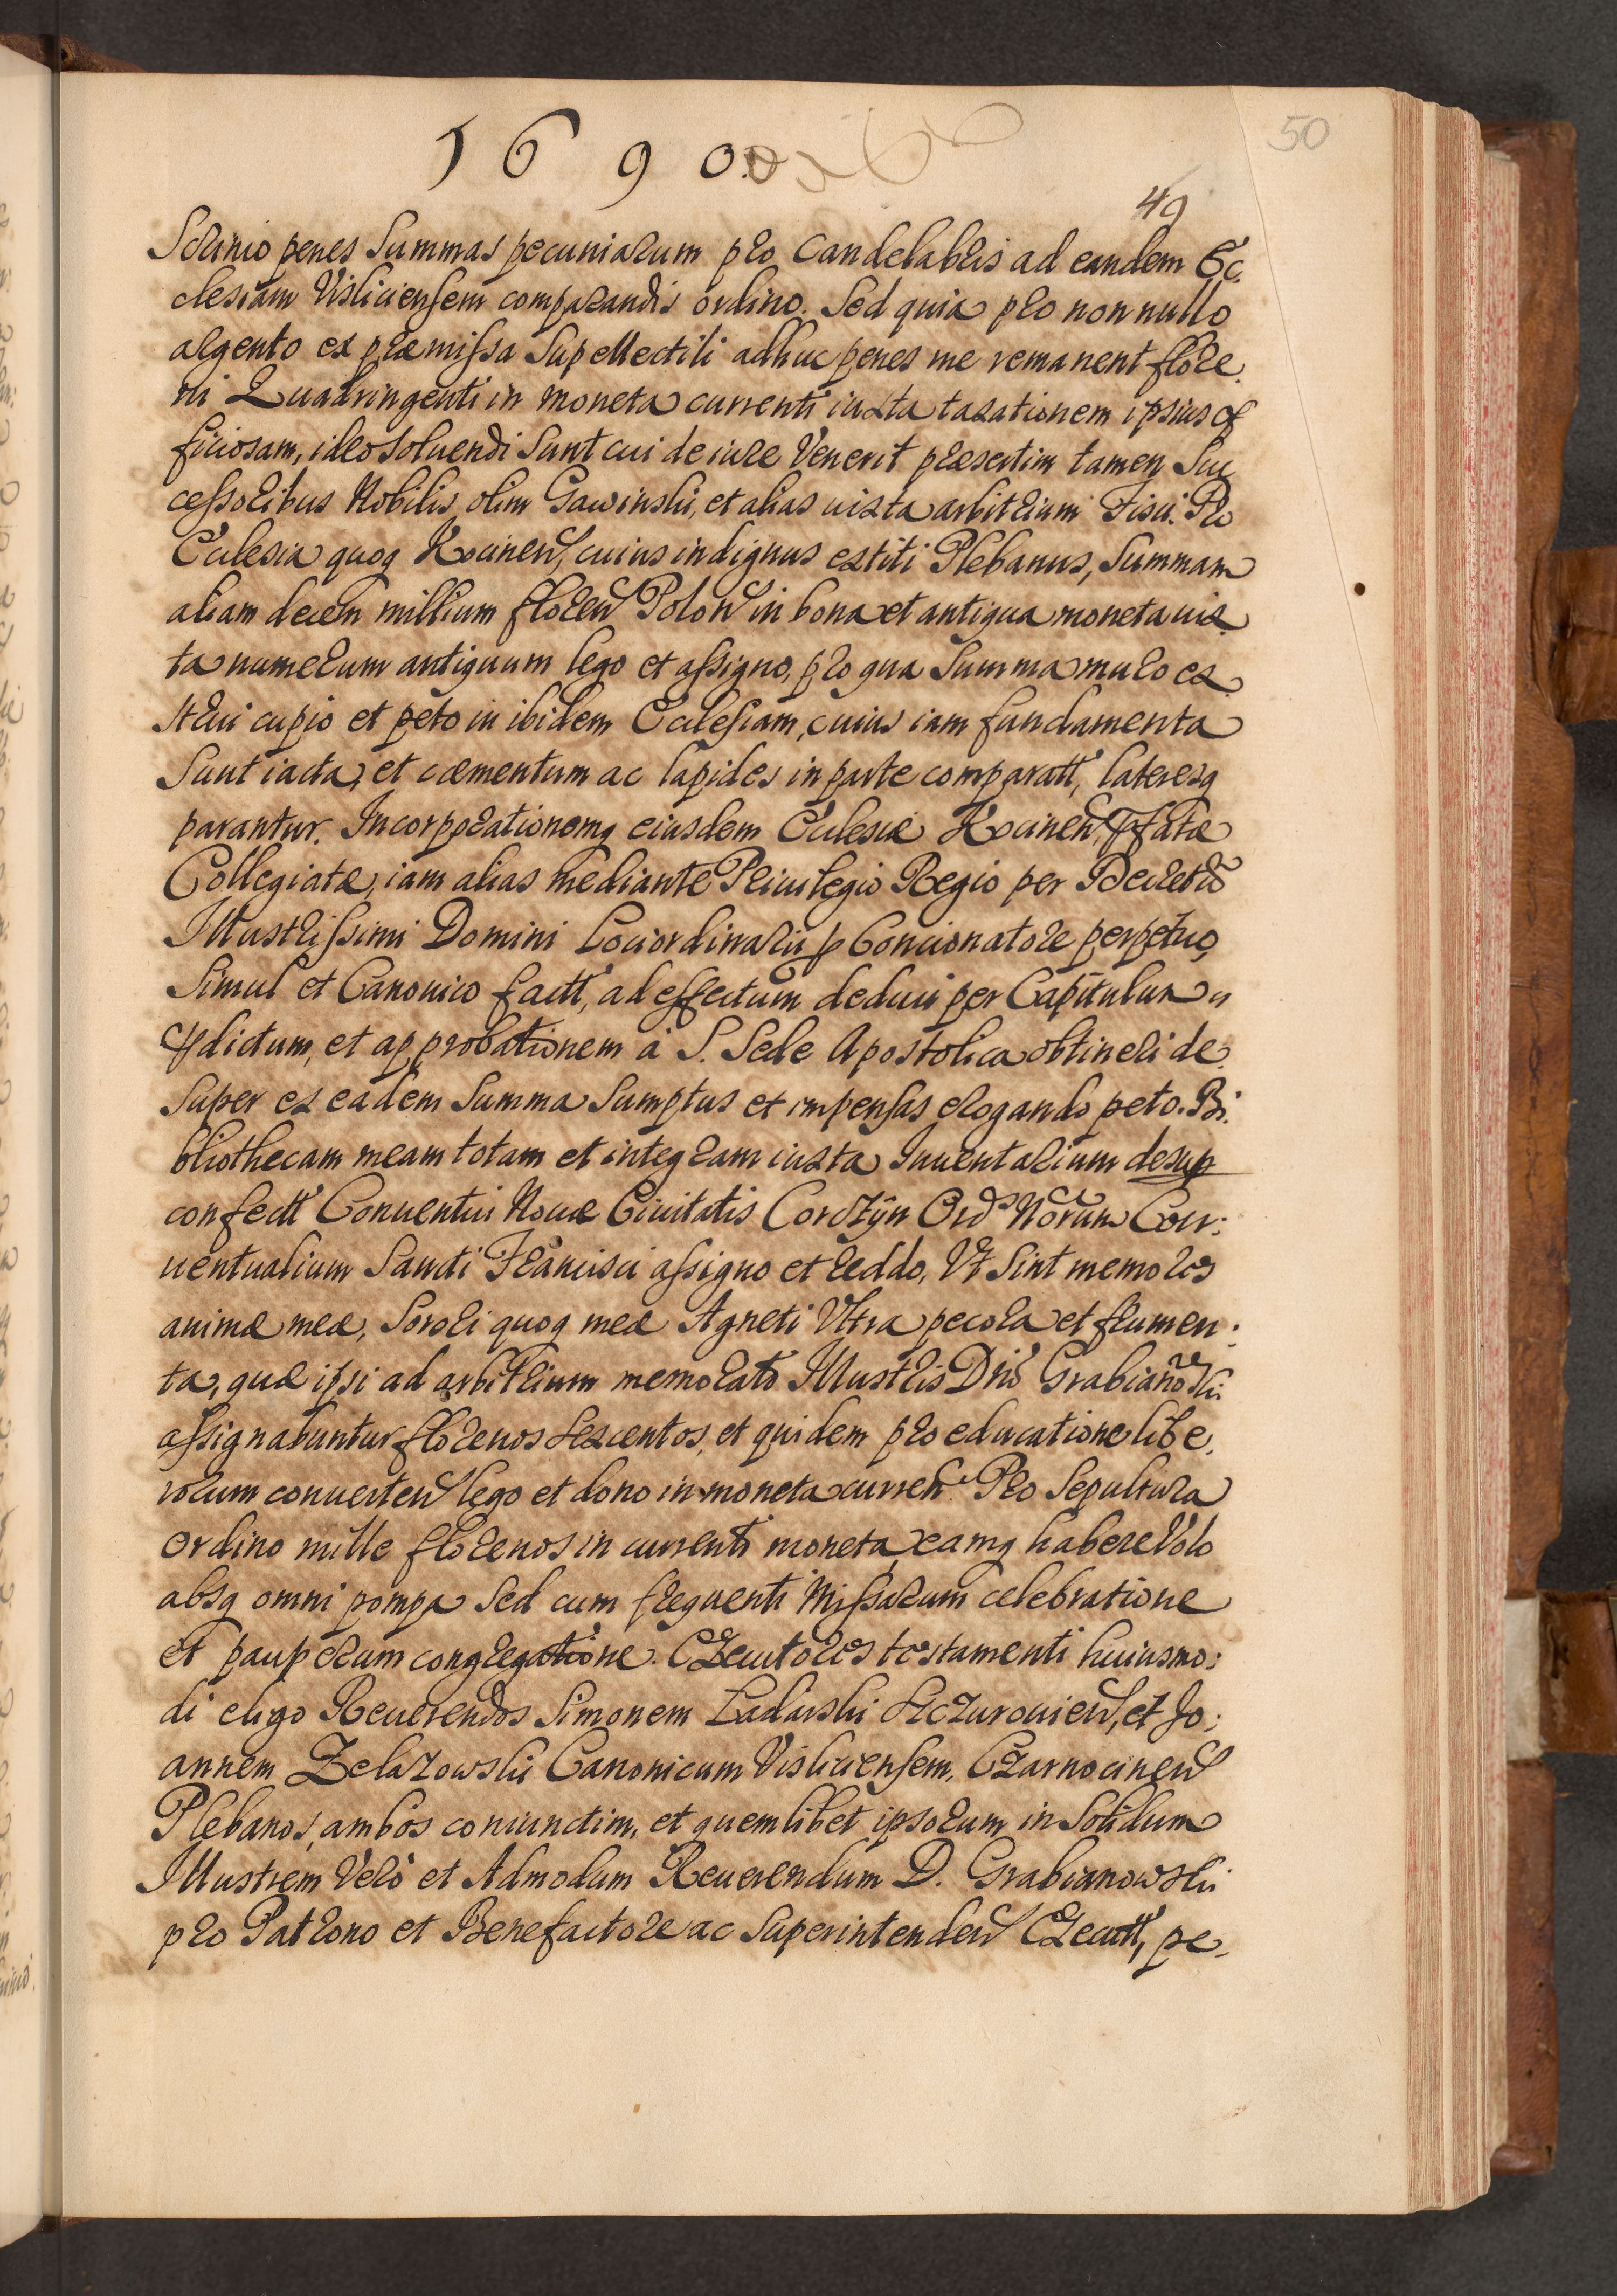 1690.
50
49
Scrinio penes Summas pecuniarum pro Candelabris ad eandem Ec:
clesiam Visliciensem comparandis ordino. Sed quia pro non nullo
argento ex præmissa Supellectili adhuc penes me remanent flore,
ni Quadringenti in moneta currenti iuxta taxationem ipsius of
ficiosam, ideo soluendi Sunt cui de iure Venerit præsertim tamen Suc
cessoribus Nobilis olim Gawinski, et alias iuxta arbitrium Fisci. Pro
Ecclesia quoq Kocinen, cuius indignus extiti Plebanus, Summam
aliam decem millium floren Polon in bona et antiqua moneta iux
ta numerum antiquum lego et assigno, pro qua Summa muro ex
strui cupio et peto in ibidem Ecclesiam, cuius iam fundamenta
Sunt iacta, et cæmentum ac lapides in parte comparatt, lateresq
parantur. Incorporationemq eiusdem Ecclesiæ Kocinen, pfatæ
Collegiatæ, iam alias mediante Priuilegio Regio per Decretũ
Illustrissimi Domini Lociordinarii p Concionatore perpetuo,
Simul et Canonico factt, ad effectum deduci per Capitulum
pdictum, et approbationem à S. Sede Apostolica obtineri de:
super ex eadem Summa Sumptus et impensas erogando peto. Bi:
bliothecam meam totam et integram iuxta Inuentarium desup
confectt Conuentui Nouæ Ciuitatis Corczÿn Ord Norum Con:
uentualium Sancti Francisci assigno et reddo, Vt Sint memores
animæ meæ, Sorori quoq meæ Agneti Vltra pecora et frumen:
ta, quæ ipsi ad arbitrium memorato Illustris Dni Grabianowski
assignabuntur florenos sexcentos, et quidem pro educatione libe,
rorum conuerten lego et dono in moneta curren. Pro Sepultura
ordino mille florenos in currenti moneta, eamq habere Volo
absq omni pompa Sed cum frequenti Missarum celebratione
et pauperum congregatione. Executores testamenti huiusmo:
di eligo Reuerendos Simonem Ladawski Szczurouien, et Jo:
annem Zelazowski Canonicum Visliciensem, Czarnocinen
Plebanos, ambos coniunctim, et quemlibet ipsorum in Solidum
Illustrem Verò et Admodum Reuerendum D. Grabianowski
pro Patrono et Benefactore ac Superintenden Executt, pe-